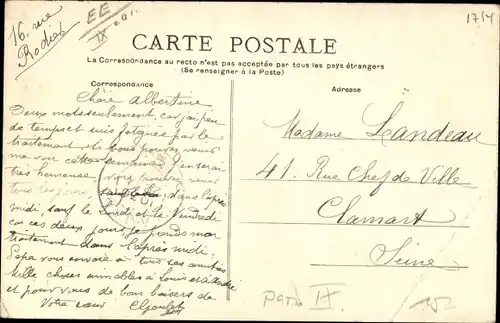 16. rue
Rodier
EE
IX
1714
CARTE POSTALE
La Correspondance au recto n'est pas acceptée par tous les pays étrangers
(Se renseigner à la Poste)
Correspondance
Adresse
Chère Albertine
Deux mots seulement car j'ai peu
de temps et suis fatiguée par le
traitement si vous pouvez venir
me voir cette semaine j'en serai
très heureuse, vous pouvez venir
tous les jours dans l'après
midi, sauf le lundi et le Vendredi
car ces deux jours je prends mon
traitement dans l'après midi.
Papa vous envoie à tous ses amitiés
Mille choses aimables à Louis et
et pour vous de bons baisers de
Votre sœur
Madame Landeau
41. Rue Chef de Ville
Clamart
Seine
Paris IX